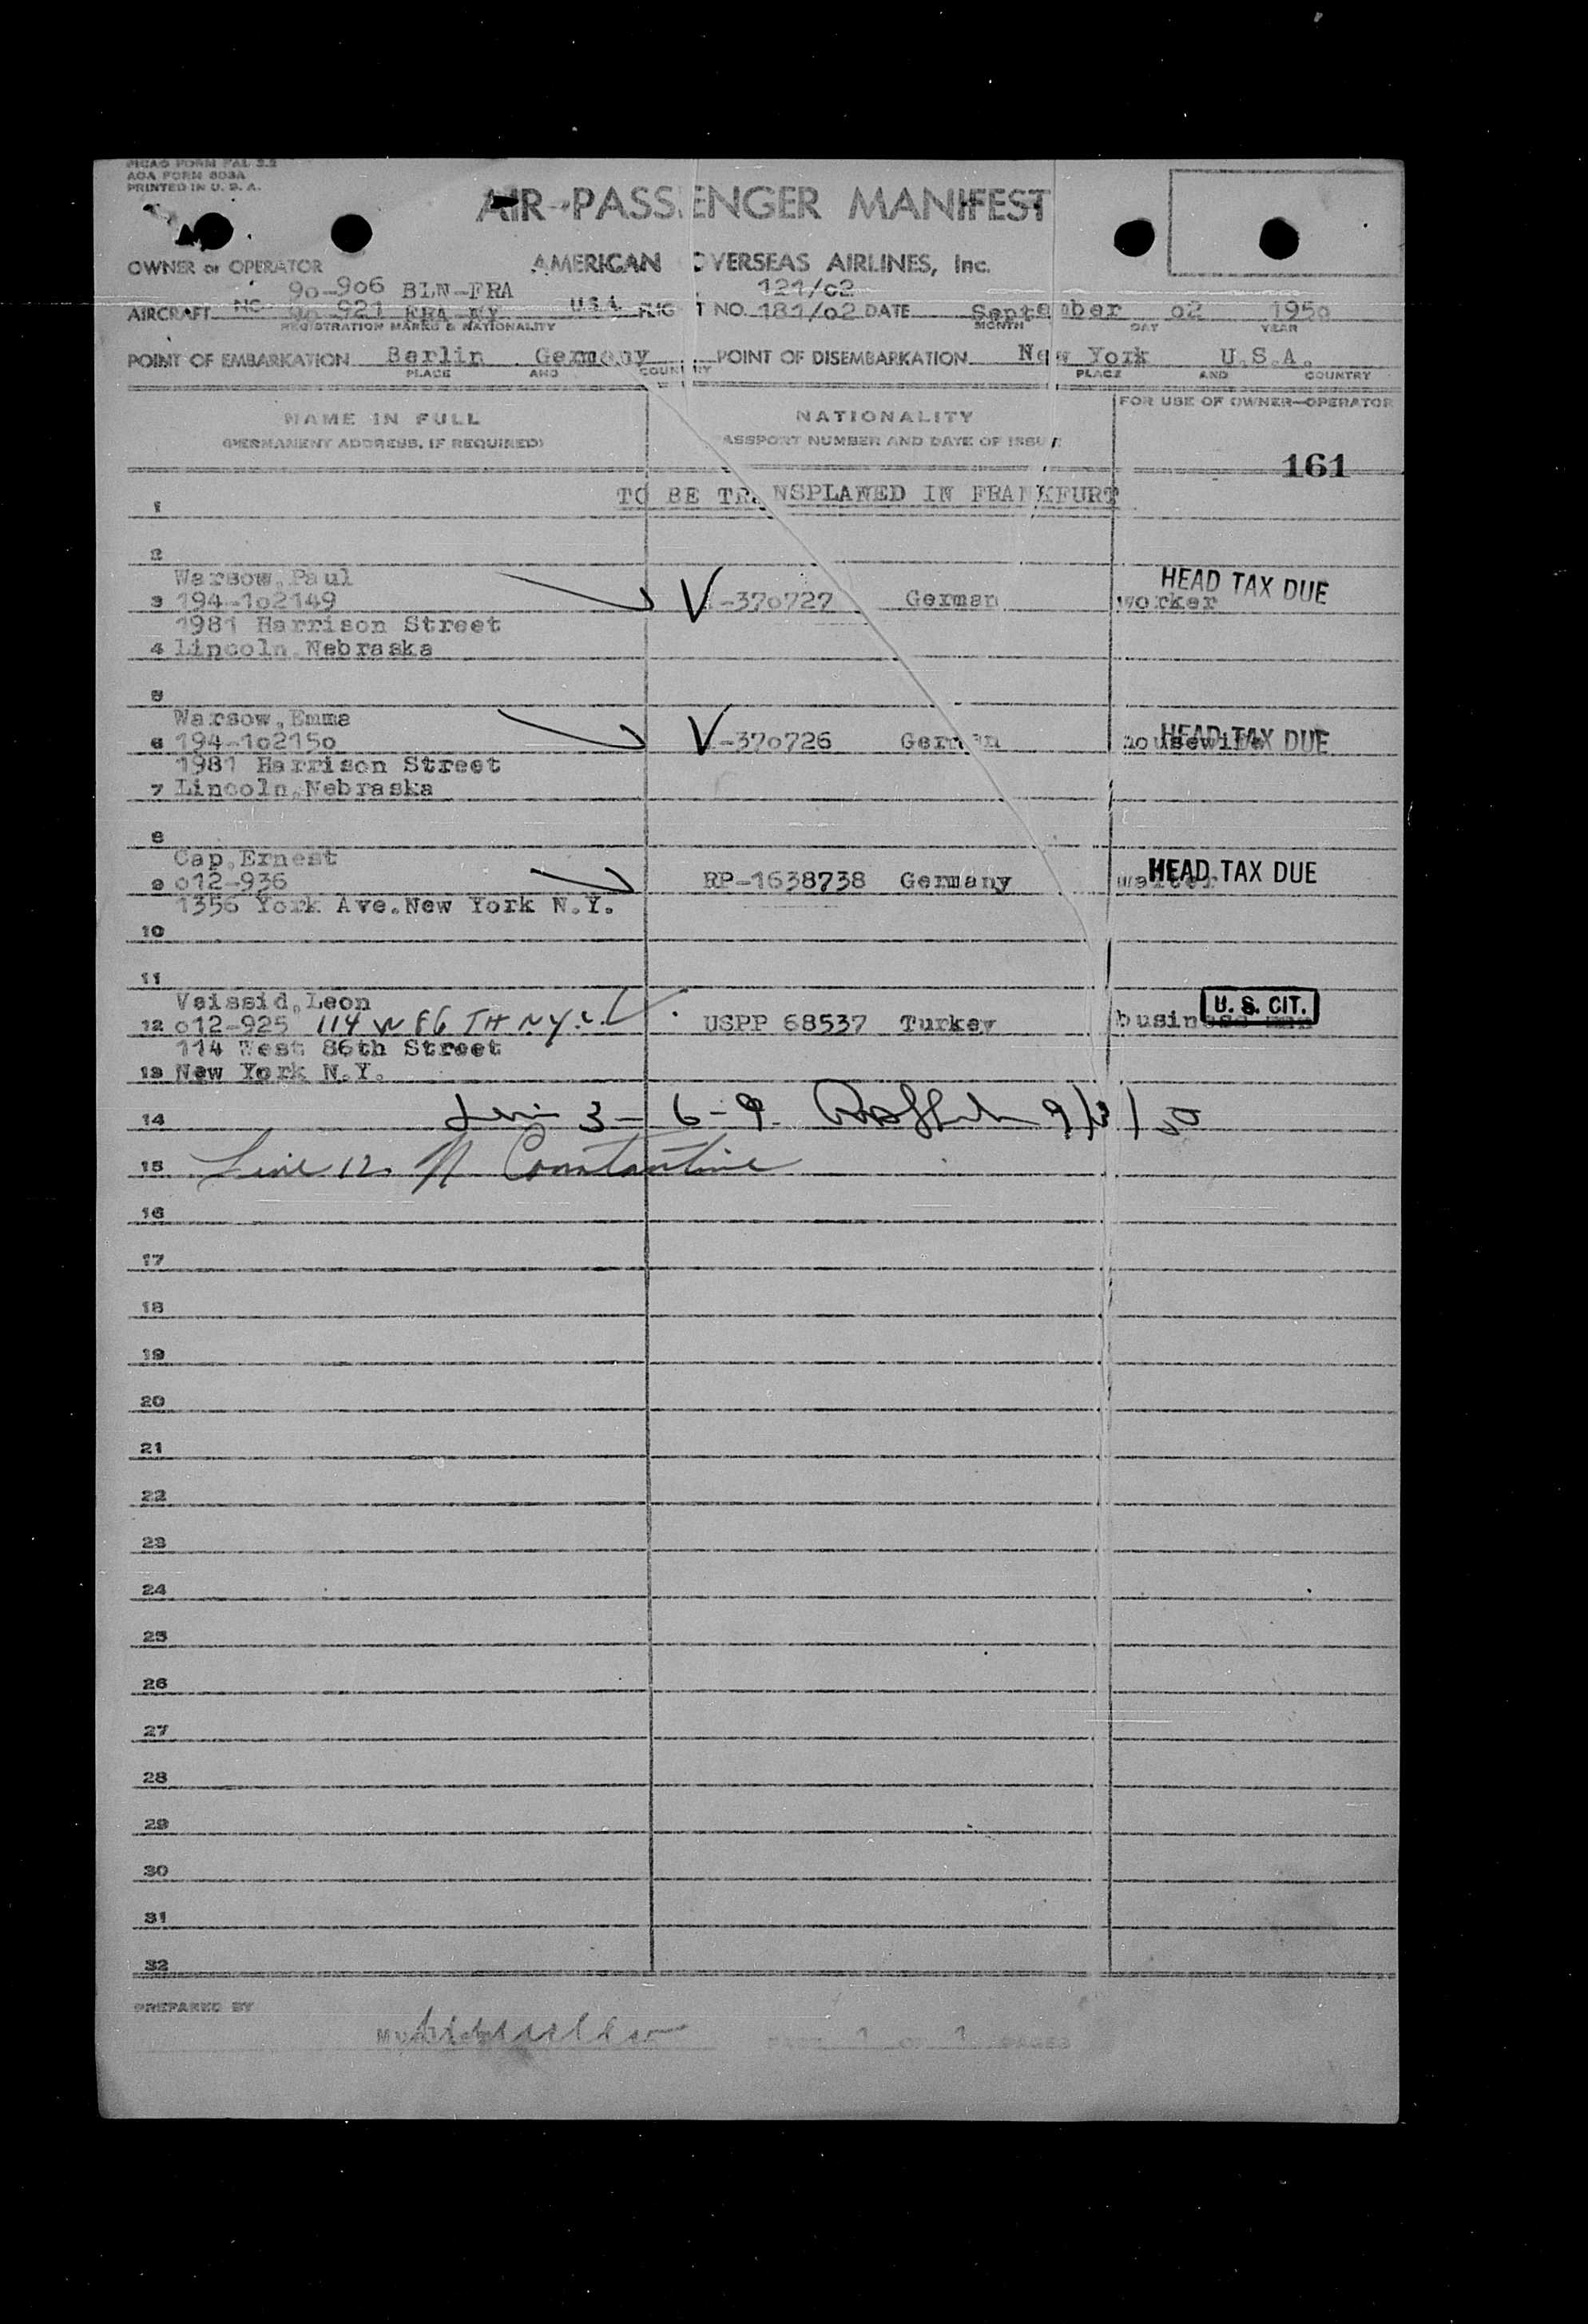 PICAO FORM FAL 3.2
AOA FORM 803A
PRINTED IN U. S. A.
AIR-PASSENGER MANIFEST
OWNER or OPERATOR AMERICAN OVERSEAS AIRLINES, Inc.
9o-9o6 BLN-FRA 121/o2
AIRCRAFT NC 9o-921 FRA-NY U.S.A. FLIGHT NO. 181/o2 DATE September o2 195o
REGISTRATION MARKS & NATIONALITY MONTH DAY YEAR
POINT OF EMBARKATION Berlin Germany POINT OF DISEMBARKATION New York U.S.A.
PLACE AND COUNTRY PLACE AND COUNTRY
NAME IN FULL NATIONALITY FOR USE OF OWNER-OPERATOR
(PERMANENT ADDRESS, IF REQUIRED) PASSPORT NUMBER AND DATE OF ISSUE
161
TO BE TRANSPLANED IN FRANKFURT
1
2
Warsow,Paul HEAD TAX DUE
3 194-1o2149 V -37o727 German worker
1981 Harrison Street
4 Lincoln,Nebraska
5
Warsow,Emma HEAD TAX DUE
6 194-1o215o V -37o726 German housewife
1981 Harrison Street
7 Lincoln,Nebraska
8
Cap,Ernest HEAD TAX DUE
9 o12-936 RP-1638738 Germany waiter
1356 York Ave.New York N.Y.
10
11
Veissid,Leon U. S. CIT.
12 o12-925 114 W 86 TH NYC USPP 68537 Turkey business man
114 West 86th Street
13 New York N.Y.
14 Line 3-6-9 9/3/50
15 Line 12 N Constantine
16
17
18
19
20
21
22
23
24
25
26
27
28
29
30
31
32
PREPARED BY
PAGE 1 OF 1 PAGES